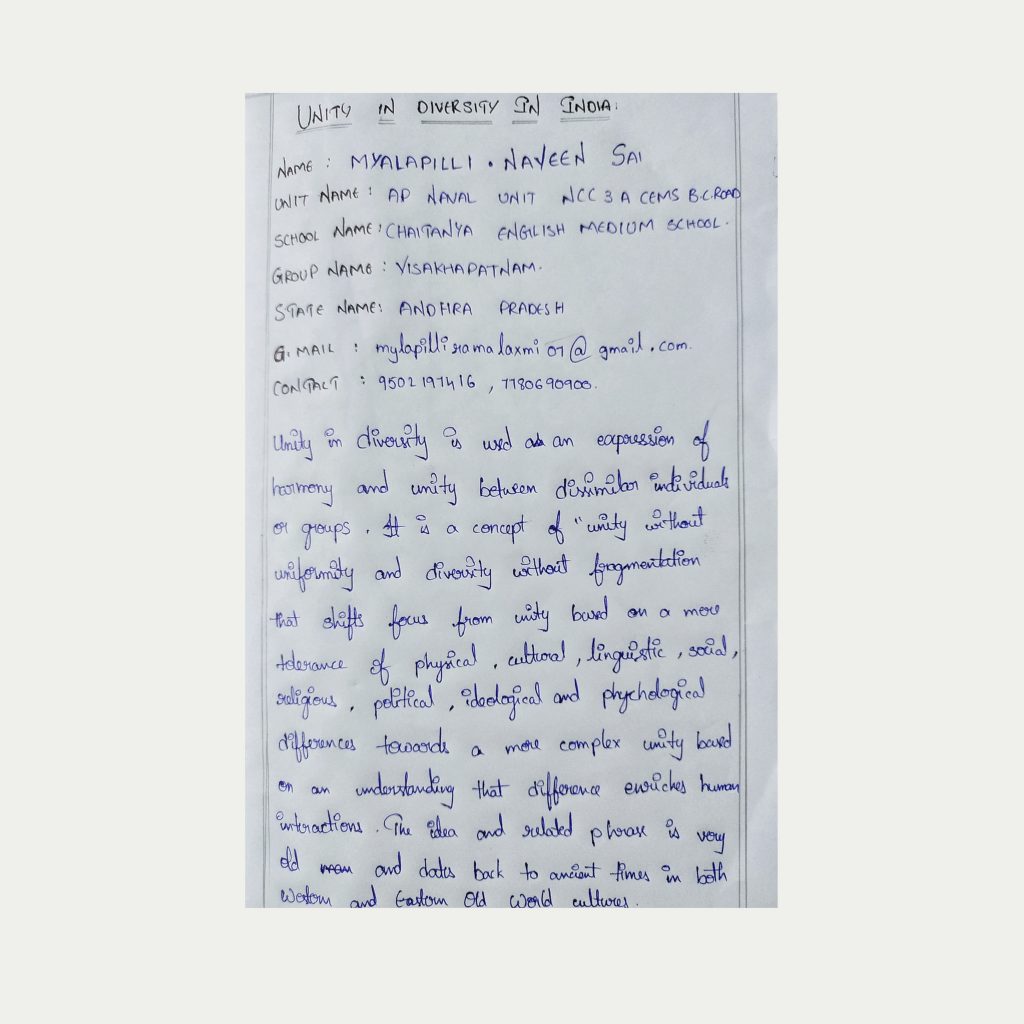 UNITY IN DIVERSITY IN INDIA.
NAME : MYALAPILLI . NAVEEN SAI
UNIT NAME : AP NAVAL UNIT NCC 3 A CEMS B.C.ROAD
SCHOOL NAME : CHAITANYA ENGILISH MEDIUM SCHOOL.
GROUP NAME : VISAKHAPATNAM.
STATE NAME: ANDHRA PRADESH
G.MAIL : mylapilliramalaxmi07@gmail.com.
CONTACT : 9502197416 , 7780690900.
Unity in diversity is used as an expression of
harmony and unity between dissimilar individuals
or groups . It is a concept of "unity without
uniformity and diversity without fragmentation
that shifts focus from unity based on a mere
tolerance of physical , cultural , linguistic , social ,
religious , political , ideological and phychological
differences towards a more complex unity based
on an understanding that difference enriches human
interactions . The idea and related phrase is very
old and dates back to ancient times in both
Western and Eastern Old World cultures .